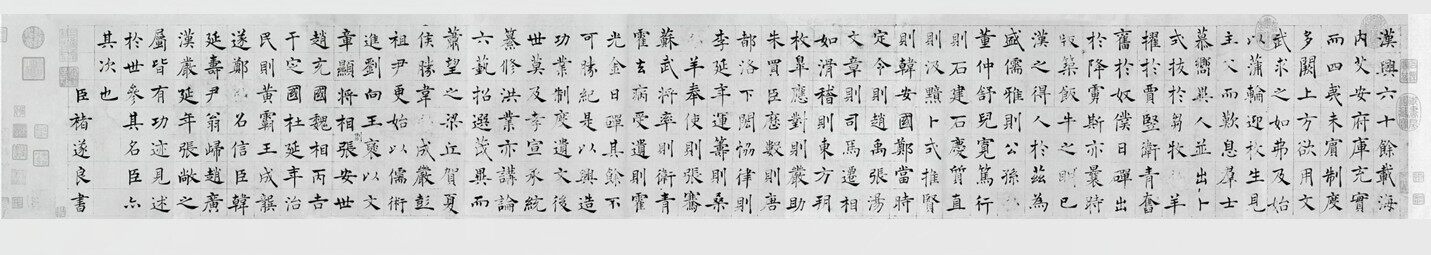 漢興六十餘載海
内艾安府庫充實
而四夷未賓制度
多闕上方欲用文
武求之如弗及始
以蒲輪迎枚生見
主父而歎息羣士
慕嚮異人並出卜
式拔於芻牧羊
擢於賈豎衛青奮
於奴僕日磾出
於降虜斯亦曩時
版築飯牛之已
漢之得人於茲為
盛儒雅則公孫
董仲舒兒寬篤行
則石建石慶質直
則汲黯卜式推賢
則韓安國鄭當時
定令則趙禹張湯
文章則司馬遷相
如滑稽則東方朔
枚皋應對則嚴助
朱買臣歷數則唐
都洛下閎協律則
李延年運籌則桑
羊奉使則張騫
蘇武將率則衛青
霍去病受遺則霍
光金日磾其餘不
可勝紀是以興造
功業制度遺文後
世莫及孝宣承統
纂修洪業亦講論
六藝招選茂異而
蕭望之梁丘賀夏
侯勝韋成嚴彭
祖尹更始以儒術
進劉向王襃以文
章顯將相張安世
趙充國魏相丙吉
于定國杜延年治
民則黃霸王成龔
遂鄭召信臣韓
延壽尹翁歸趙廣
漢嚴延年張敞之
屬皆有功迹見述
於世參其名臣亦
其次也
臣褚遂良書